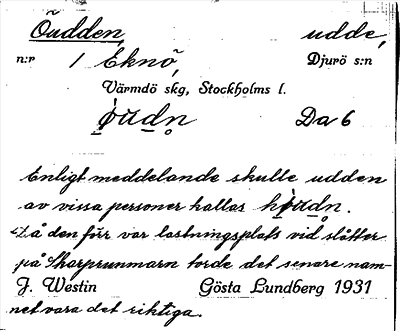 Öudden, udde,
n:r 1 Eknö, Djurö s:n
Värmdö skg, Stockholms l.
òudn Da 6
Enligt meddelande skulle udden
av vissa personer kallas hòudn.
Då den förr var lastningsplats vid slåtter
på Skarprunmarn torde det senare nam-
J. Westin Gösta Lundberg 1931
net vara det riktiga.